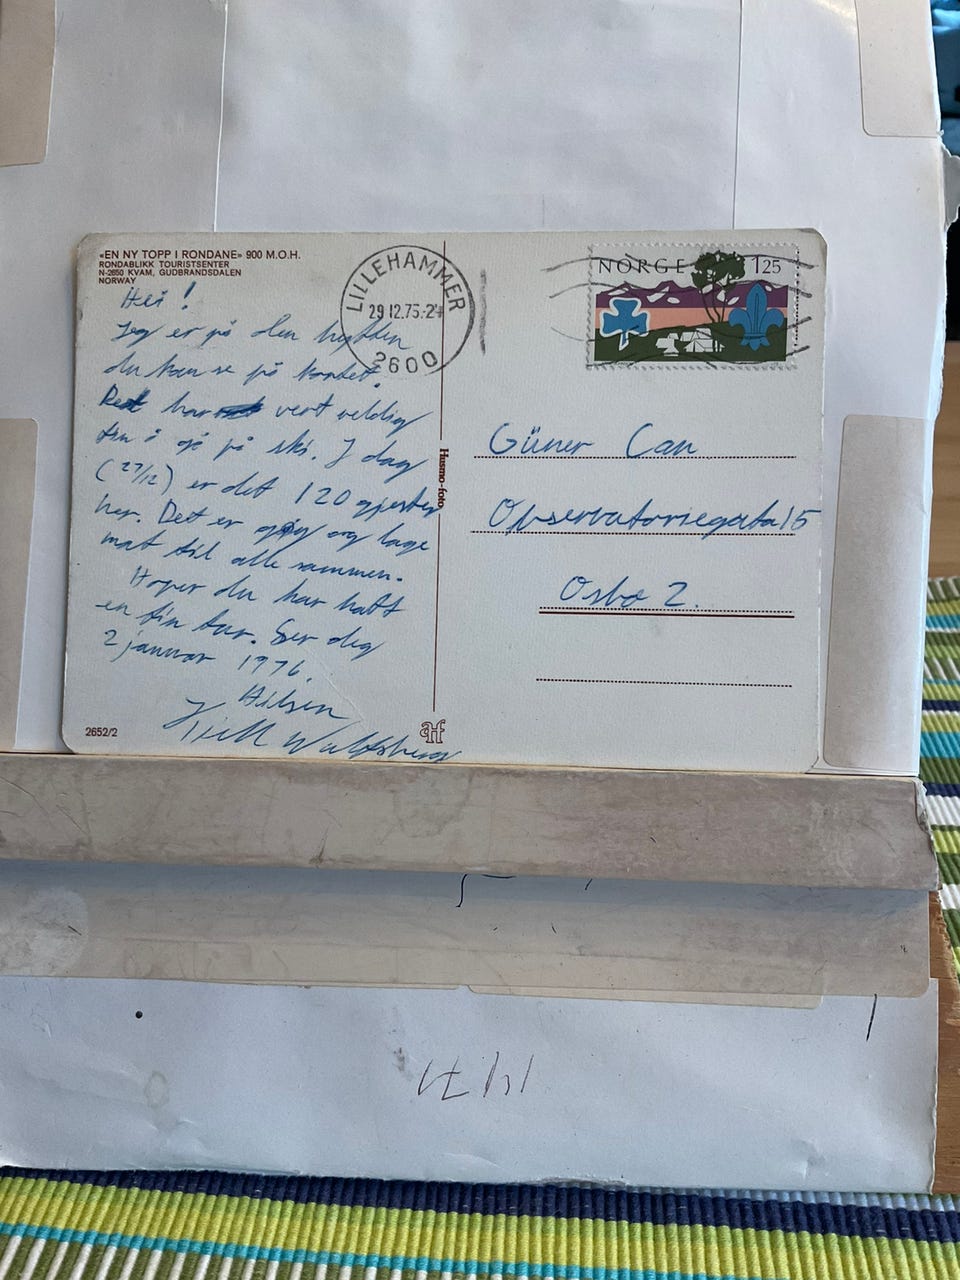 «EN NY TOPP I RONDANE» 900 M.O.H.
RONDABLIKK TOURISTSENTER
N-2650 KVAM, GUDBRANDSDALEN
NORWAY
Hei !
Jeg er på den hytten
du kan se på kortet.
Det har vert veldig
fin å gå på ski. I dag
(27/12) er det 120 gjester
her. Det er gøy og lage
mat til alle sammen.
Hoper du har hatt
en fin tur. Ser deg
2 januar 1976.
Hilsen
2652/2
Husmo-foto
LILLEHAMMER
29.12.75.-2
2600
NORGE 125
Güner Can
Observatoriegata 15
Oslo 2.